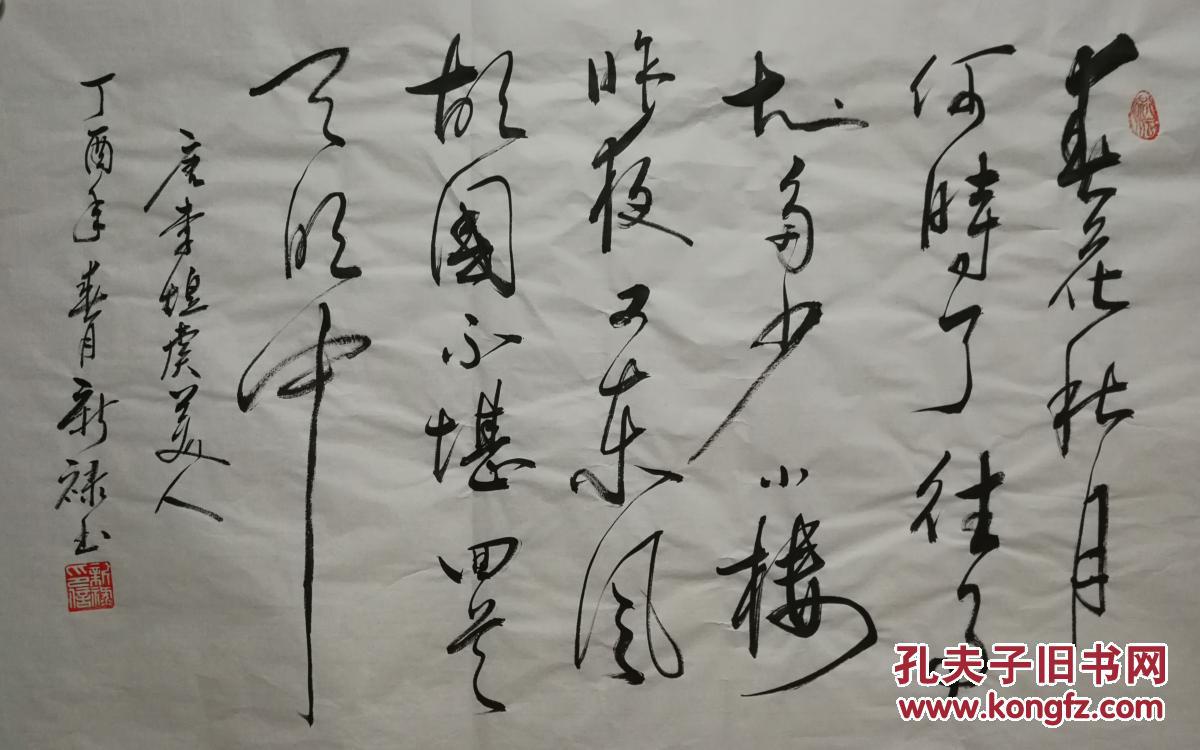 春花秋月
何時了往事
知多少小樓
昨夜又东風
故國不堪回首
明中
唐李煜虞美人
丁酉年春月新禄书
新禄印信
孔夫子旧书网
www.kongfz.com